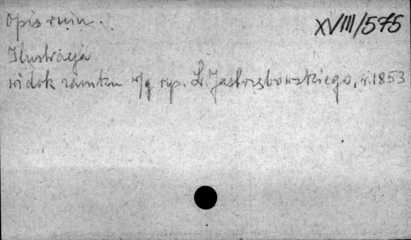 Opis ruin.
XVIII/575
Ilustracja
widok zamku w/g rys. L. Jastrzębowskiego, r. 1853